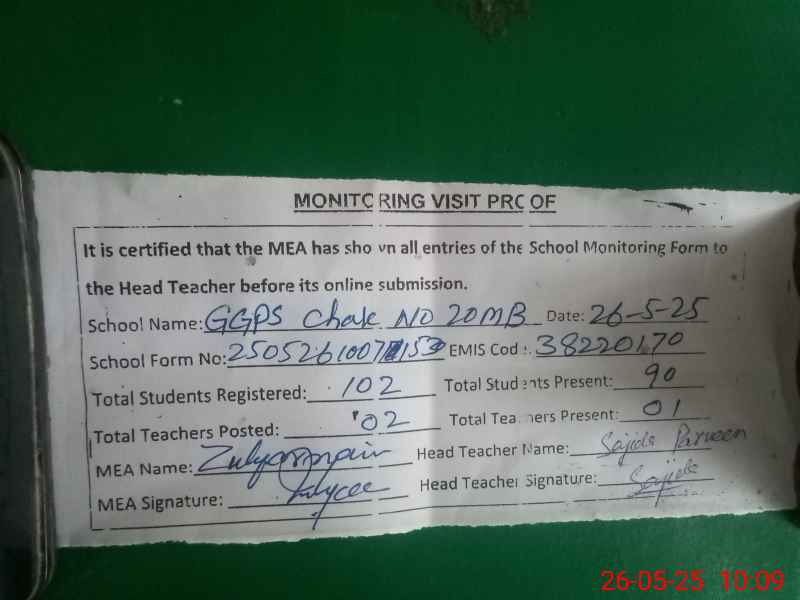 MONITORING VISIT PROOF
It is certified that the MEA has shown all entries of the School Monitoring Form to
the Head Teacher before its online submission.
School Name: GGPS Chak NO 20MB Date: 26-5-25
School Form No: EMIS Code: 38220170
Total Students Registered: 102 Total Students Present: 90
Total Teachers Posted: 02 Total Teachers Present: 01
MEA Name: Head Teacher Name: Sajida Parveen
MEA Signature: Head Teacher Signature: Sajida
26-05-25 10:09